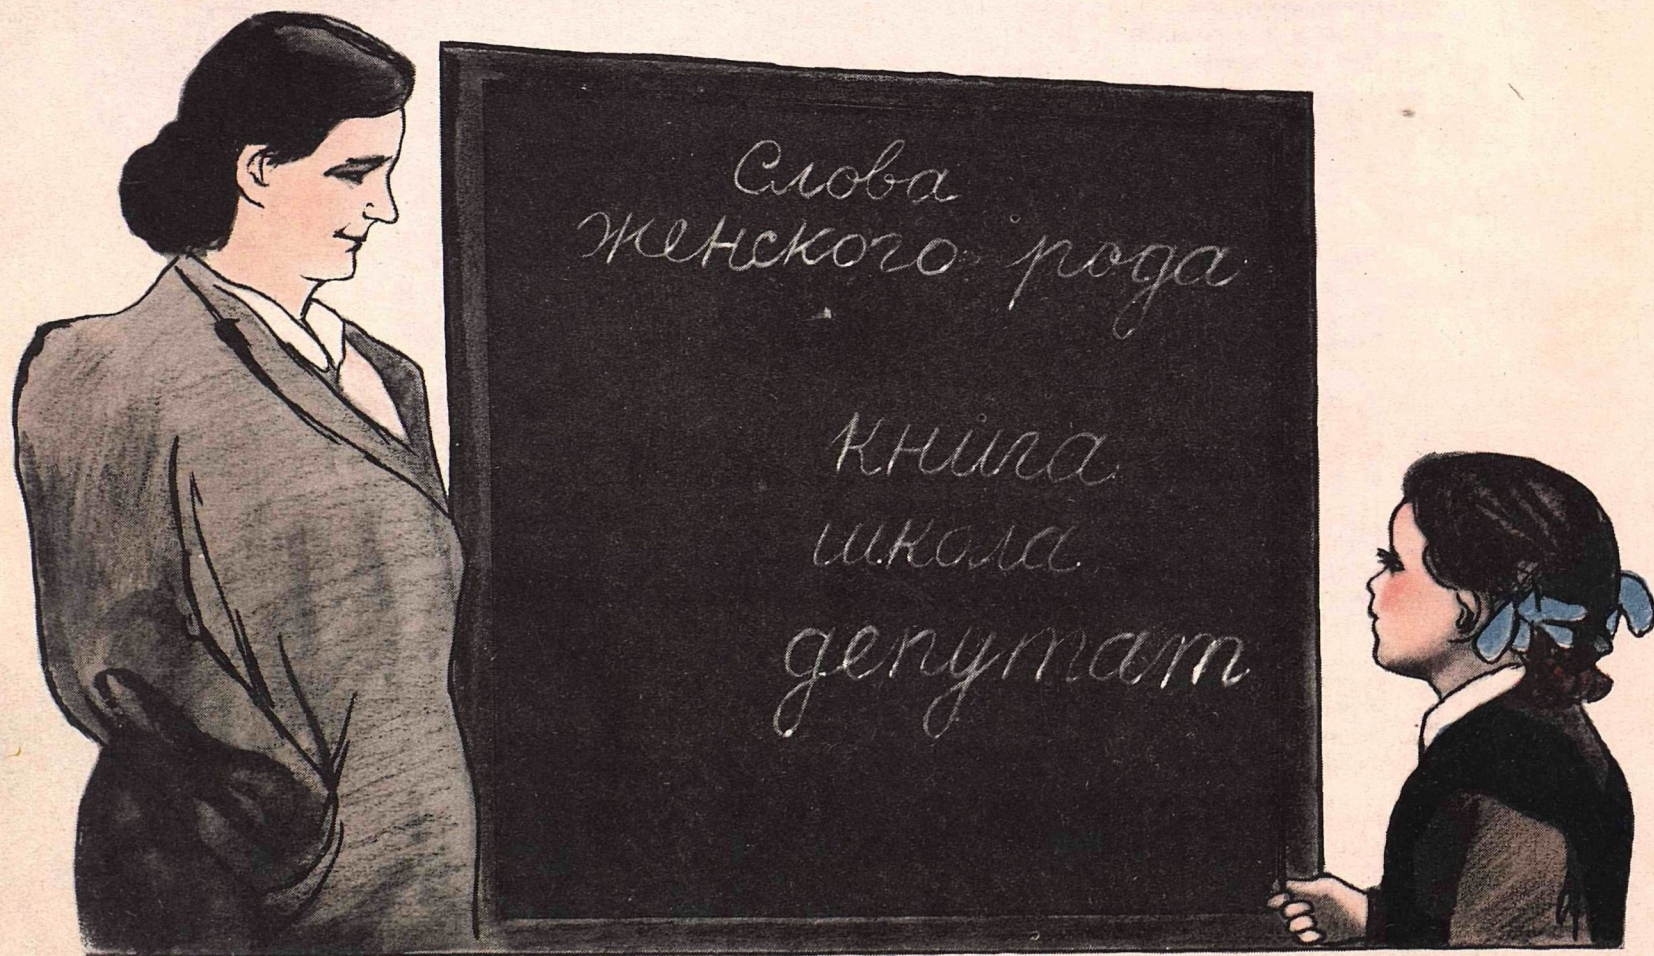 Слова
женского рода
книга
школа
депутат